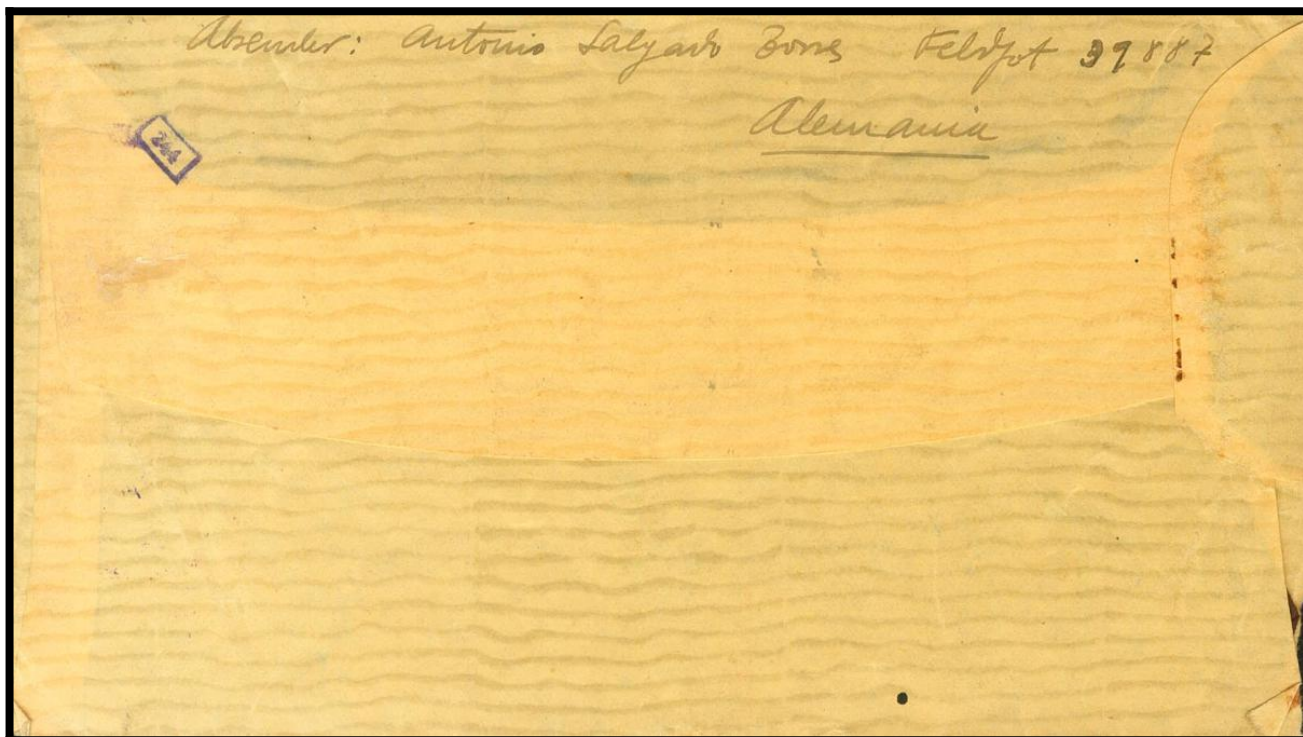 Absender: Antonio Salgado Feldpot 39887
Alemania
244